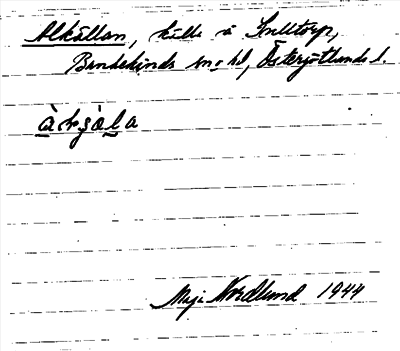 Alkällan, källa i Smultorp,
Bankekinds sn o hd, Östergötlands l.
Maj Nordlund 1944